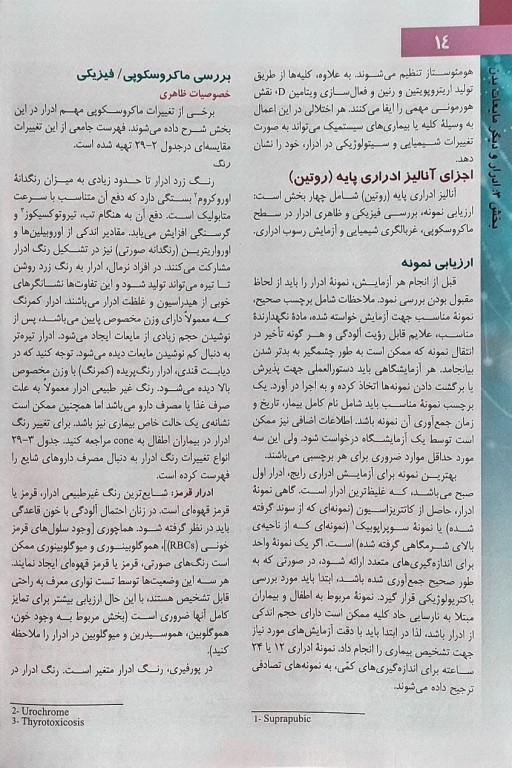 ۱٤
بخش ۳: ادرار و دیگر مایعات بدن
هومئوستاز تنظیم می‌شوند. به علاوه، کلیه‌ها از طریق
تولید اریتروپویتین و رنین و فعال‌سازی ویتامین D، نقش
هورمونی مهمی را ایفا می‌کنند. هر اختلالی در این اعمال
به وسیلهٔ کلیه یا بیماری‌های سیستمیک می‌تواند به صورت
تغییرات شیمیایی و سیتولوژیکی در ادرار، خود را نشان
دهد.
اجزای آنالیز ادراری پایه (روتین)
آنالیز ادراری پایه (روتین) شامل چهار بخش است:
ارزیابی نمونه، بررسی فیزیکی و ظاهری ادرار در سطح
ماکروسکوپی، غربالگری شیمیایی و آزمایش رسوب ادراری.
ارزیابی نمونه
قبل از انجام هر آزمایش، نمونهٔ ادرار را باید از لحاظ
مقبول بودن بررسی نمود. ملاحظات شامل برچسب صحیح،
نمونهٔ مناسب جهت آزمایش خواسته شده، مادهٔ نگهدارندهٔ
مناسب، علایم قابل رؤیت آلودگی و هر گونه تأخیر در
انتقال نمونه که ممکن است به طور چشمگیر به بدتر شدن
بیانجامد. هر آزمایشگاهی باید دستورالعملی جهت پذیرش
یا برگشت دادن نمونه‌ها اتخاذ کرده و به اجرا در آورد. یک
برچسب نمونهٔ مناسب باید شامل نام کامل بیمار، تاریخ و
زمان جمع‌آوری آن نمونه باشد. اطلاعات اضافی نیز ممکن
است توسط یک آزمایشگاه درخواست شود. ولی این سه
مورد حداقل موارد ضروری برای هر برچسبی می‌باشند.
بهترین نمونه برای آزمایش ادراری رایج، ادرار اول
صبح می‌باشد، که غلیظ‌ترین ادرار است. گاهی نمونهٔ
ادرار، حاصل از کاتتریزاسیون (نمونه‌ای که از سوند گرفته
شده) یا نمونهٔ سوپراپوبیک۱ (نمونه‌ای که از ناحیه‌ی
بالای شرمگاهی گرفته شده) است. اگر یک نمونهٔ واحد
برای اندازه‌گیری‌های متعدد ارائه شود، در صورتی که به
طور صحیح جمع‌آوری شده باشد، ابتدا باید مورد بررسی
باکتریولوژیکی قرار گیرد. نمونهٔ مربوط به اطفال و بیماران
مبتلا به نارسایی حاد کلیه ممکن است دارای حجم اندکی
از ادرار باشد، لذا در ابتدا باید با دقت آزمایش‌های مورد نیاز
جهت تشخیص بیماری را انجام داد. نمونهٔ ادراری ۱۲ یا ۲۴
ساعته برای اندازه‌گیری‌های کمّی، به نمونه‌های تصادفی
ترجیح داده می‌شوند.
1- Suprapubic
بررسی ماکروسکوپی/ فیزیکی
خصوصیات ظاهری
برخی از تغییرات ماکروسکوپی مهم ادرار در این
بخش شرح داده می‌شوند. فهرست جامعی از این تغییرات
مقایسه‌ای درجدول ۲-۲۹ تهیه شده است.
رنگ
رنگ زرد ادرار تا حدود زیادی به میزان رنگدانهٔ
اوروکروم۲ بستگی دارد که دفع آن متناسب با سرعت
متابولیک است. دفع آن به هنگام تب، تیروتوکسیکوز۳ و
گرسنگی افزایش می‌یابد. مقادیر اندکی از اوروبیلین‌ها و
اورواریترین (رنگدانه صورتی) نیز در تشکیل رنگ ادرار
مشارکت می‌کنند. در افراد نرمال، ادرار به رنگ زرد روشن
تا تیره می‌تواند تولید شود و این تفاوت‌ها نشانگرهای
خوبی از هیدراسیون و غلظت ادرار می‌باشند. ادرار کمرنگ
که معمولاً دارای وزن مخصوص پایین می‌باشد، پس از
نوشیدن حجم زیادی از مایعات ایجاد می‌شود. ادرار تیره‌تر
به دنبال کم نوشیدن مایعات دیده می‌شود. توجه کنید که در
دیابت قندی، ادرار رنگ‌پریده (کمرنگ) با وزن مخصوص
بالا دیده می‌شود. رنگ غیر طبیعی ادرار معمولاً به علت
صرف غذا یا مصرف دارو می‌باشد اما همچنین ممکن است
نشانه‌ی یک حالت خاص بیماری نیز باشد. برای تغییر رنگ
ادرار در بیماران اطفال به cone مراجعه کنید. جدول ۳-۲۹
انواع تغییرات رنگ ادرار به دنبال مصرف داروهای شایع را
فهرست کرده است.
ادرار قرمز: شایع‌ترین رنگ غیرطبیعی ادرار، قرمز یا
قرمز قهوه‌ای است. در زنان احتمال آلودگی با خون قاعدگی
باید در نظر گرفته شود. هماچوری [وجود سلول‌های قرمز
خونی (RBCs)]، هموگلوبینوری و میوگلوبینوری ممکن
است رنگ‌های صورتی، قرمز یا قرمز قهوه‌ای ایجاد نمایند.
هر سه این وضعیت‌ها توسط تست نواری معرف به راحتی
قابل تشخیص هستند، با این حال ارزیابی بیشتر برای تمایز
کامل آنها ضروری است (بخش مربوط به وجود خون،
هموگلوبین، هموسیدرین و میوگلوبین در ادرار را ملاحظه
کنید).
در پورفیری، رنگ ادرار متغیر است. رنگ ادرار در
2- Urochrome
3- Thyrotoxicosis